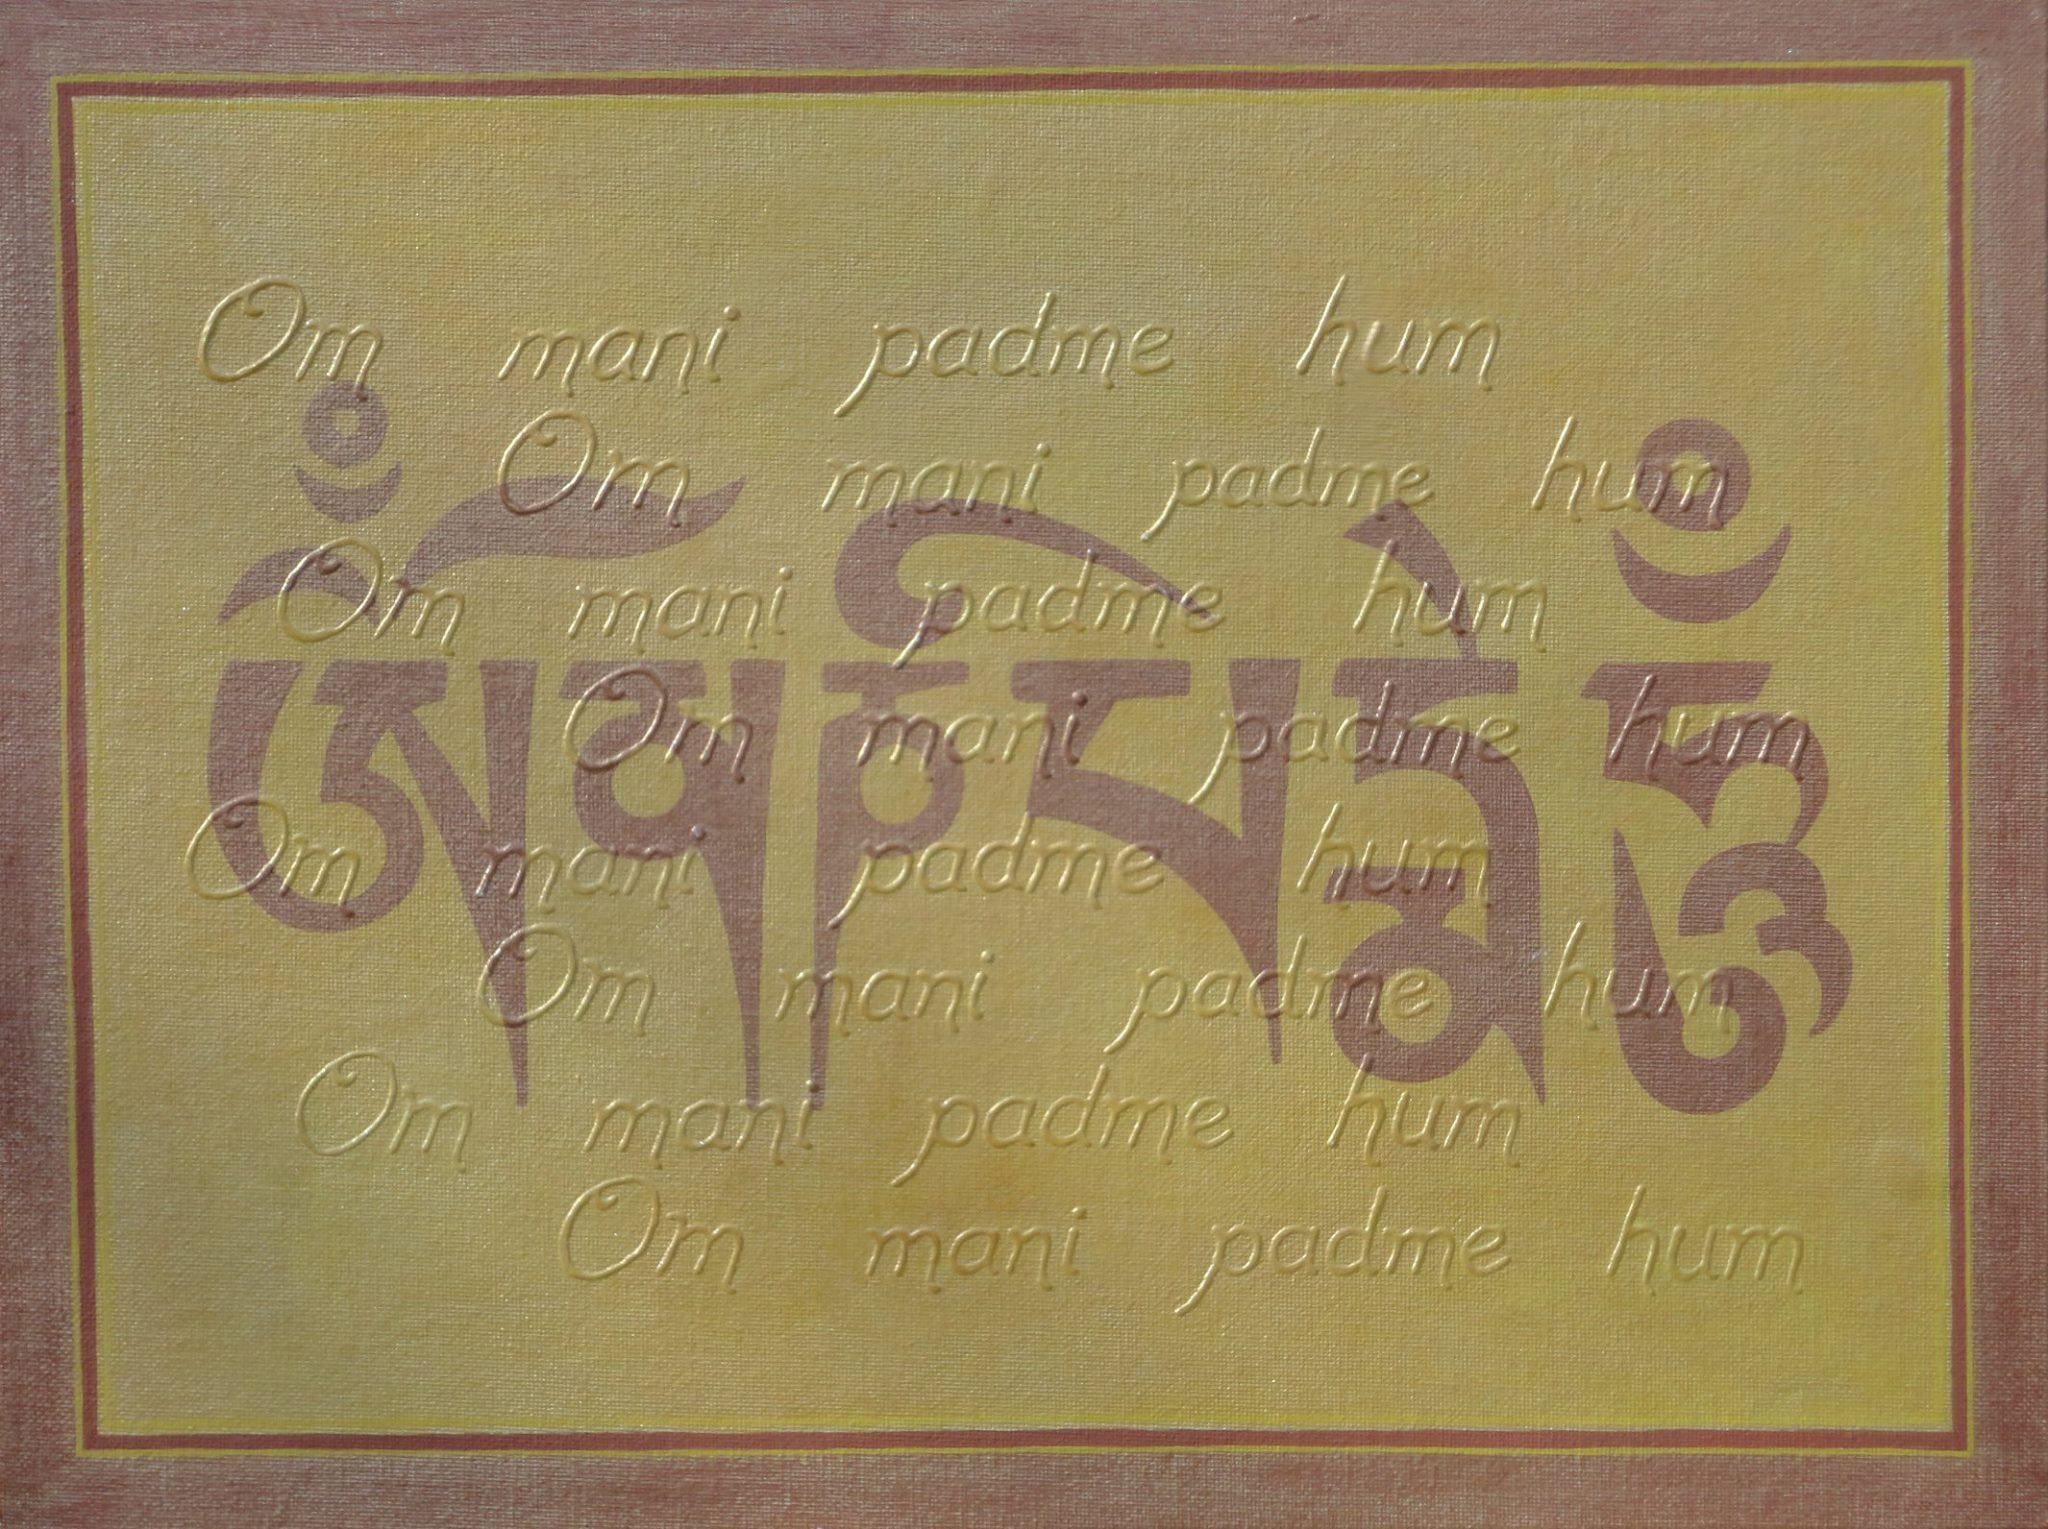 Om mani padme hum
Om mani padme hum
Om mani padme hum
ༀ་མ་ཎི་པ་དྨེ་ཧཱུྃ
Om mani padme hum
Om mani padme hum
Om mani padme hum
Om mani padme hum
Om mani padme hum